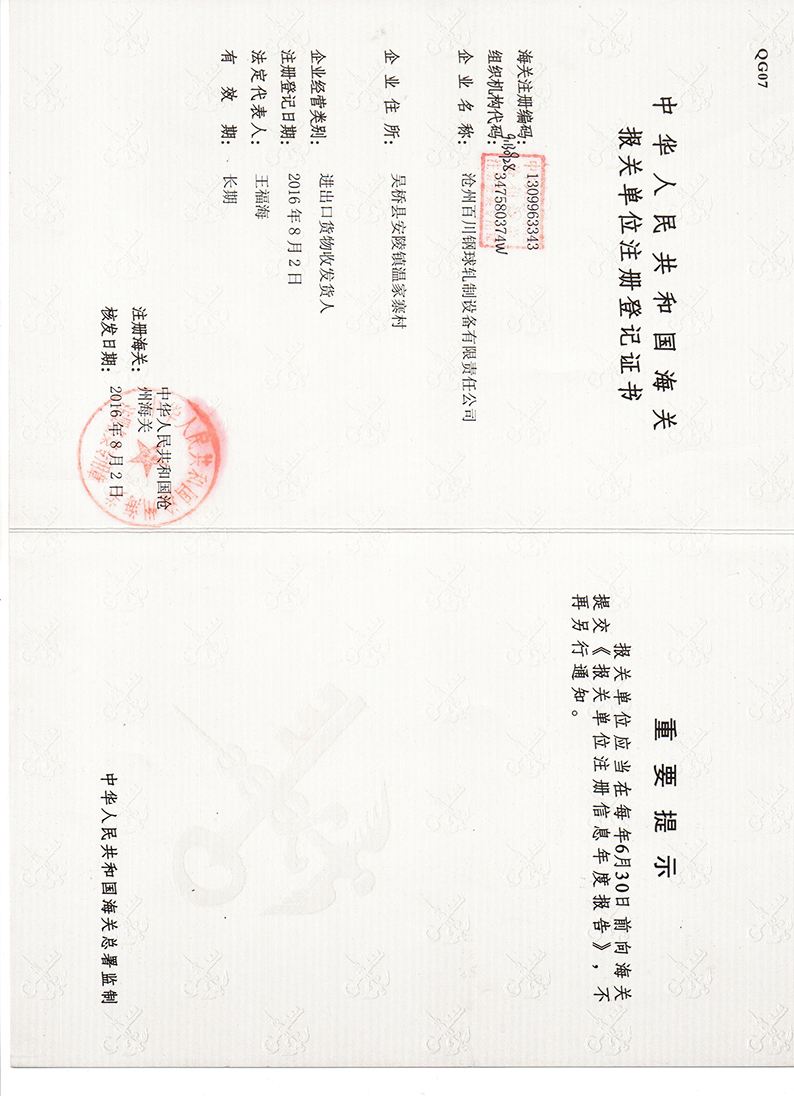 QG07
中华人民共和国海关
报关单位注册登记证书
海关注册编码：1309963343
组织机构代码：347580374W
企业名称：沧州百川钢球轧制设备有限责任公司
企业住所：吴桥县安陵镇温家寨村
企业经营类别：进出口货物收发货人
注册登记日期：2016年8月2日
法定代表人：王福海
有效期：长期
注册海关：中华人民共和国沧
州海关
核发日期：2016年8月2日
重要提示
报关单位应当在每年6月30日前向海关
提交《报关单位注册信息年度报告》，不
再另行通知。
中华人民共和国海关总署监制